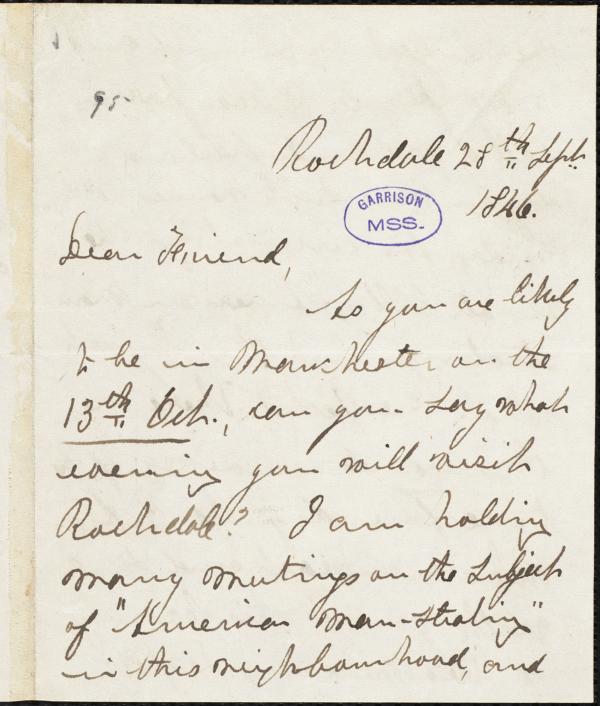 95
Rochdale 28th Sept.
1846.
GARRISON
MSS.
Dear Friend,
As you are likely
to be in Manchester on the
13th Oct., can you say what
evening you will visit
Rochdale? I am holding
many meetings on the subject
of "American Man-stealing"
in this neighbourhood, and